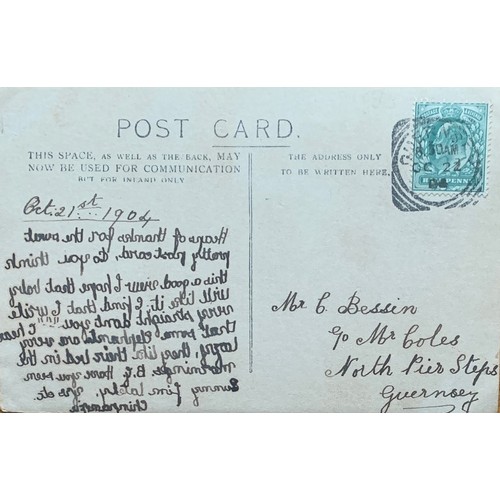 POST CARD.
THIS SPACE, AS WELL AS THE BACK, MAY
NOW BE USED FOR COMMUNICATION
BUT FOR INLAND ONLY
THE ADDRESS ONLY
TO BE WRITTEN HERE.
OC 22
04
HALFPENNY
Oct. 21st 1904
Heaps of thanks for the sweet
pretty postcard, do you think
this a good view I hope that baby
will like it. I find that I write
very straight dont you "!!" I hear
that some elephants are very
lazy, they like their bed in the
mornings. Have you seen
Sunny Jim lately. yrs etc
Mr C. Bessin
c/o Mr Coles
North Pier Steps
Guernsey